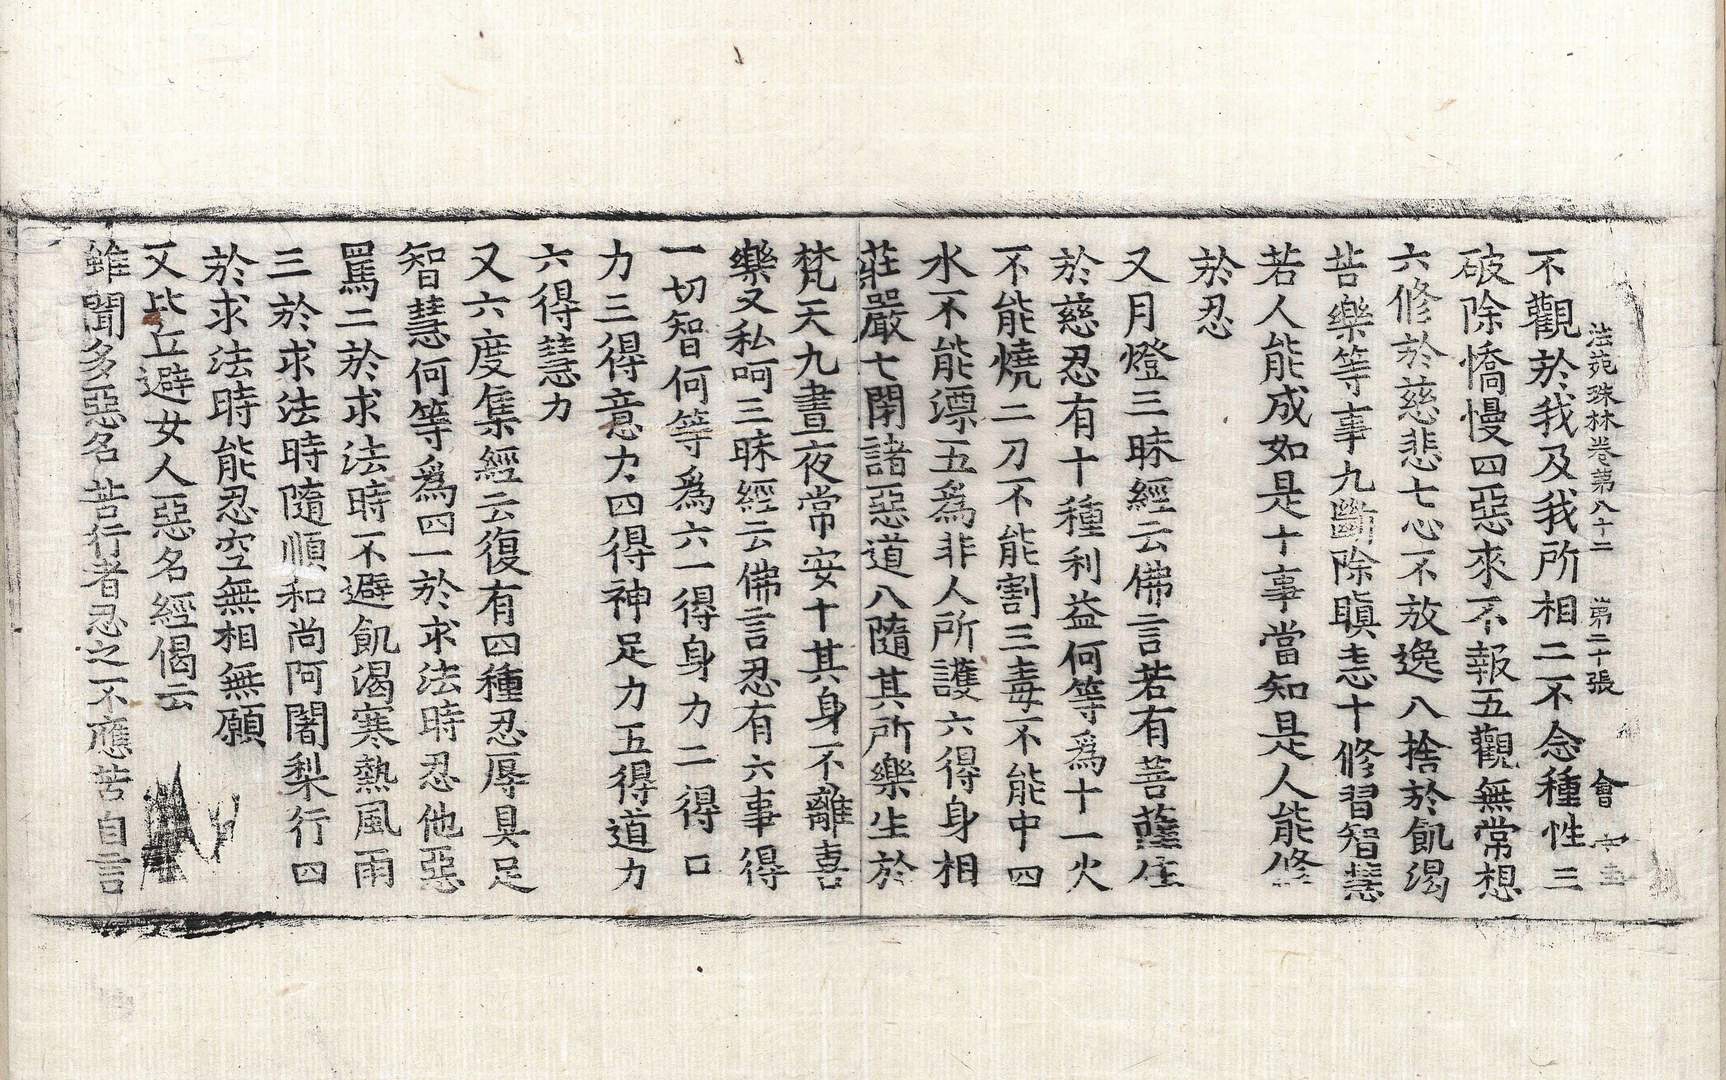 法苑珠林卷第八十二 第二十張 會
不觀於我及我所相二不念種性三
破除憍慢四惡來不報五觀無常想
六修於慈悲七心不放逸八捨於飢渴
苦樂等事九斷除瞋恚十修習智慧
若人能成如是十事當知是人能修
於忍
又月燈三昧經云佛言若有菩薩住
於慈忍有十種利益何等爲十一火
不能燒二刀不能割三毒不能中四
水不能漂五爲非人所護六得身相
莊嚴七閉諸惡道八隨其所樂生於
梵天九晝夜常安十其身不離喜
樂又私呵三昧經云佛言忍有六事得
一切智何等爲六一得身力二得口
力三得意力四得神足力五得道力
六得慧力
又六度集經云復有四種忍辱具足
智慧何等爲四一於求法時忍他惡
罵二於求法時不避飢渴寒熱風雨
三於求法時隨順和尚阿闍梨行四
於求法時能忍空無相無願
又比丘避女人惡名經偈云
雖聞多惡名 苦行者忍之 不應苦自言